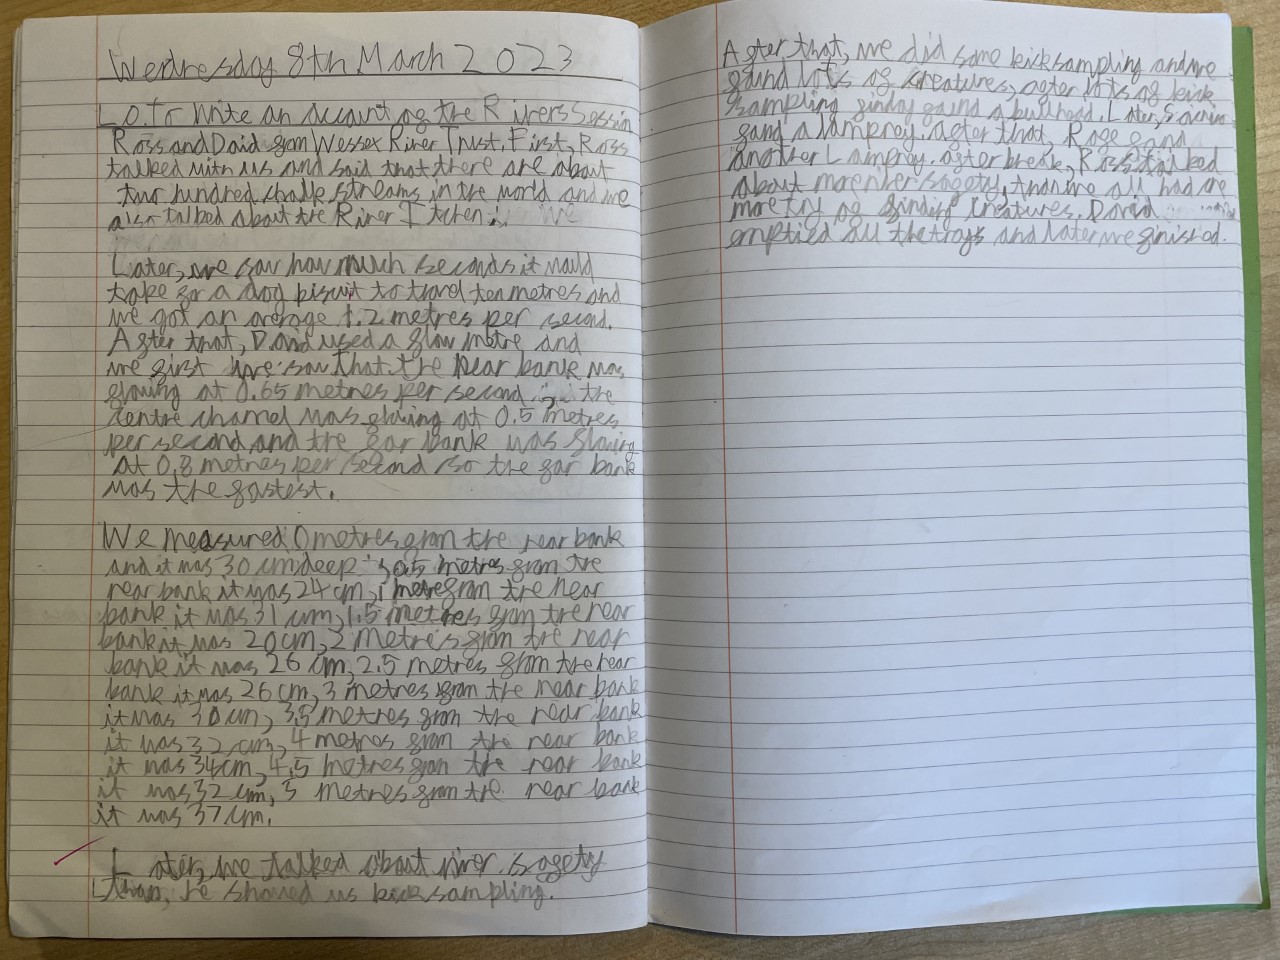 Wednesday 8th March 2023
L.O. To write an account of the Rivers Session
Ross and David from Wessex River Trust. First, Ross
talked with us and said that there are about
two hundred chalk streams in the world and we
also talked about the River Itchen.
Later, we saw how much seconds it would
take for a dog biscuit to travel ten metres and
we got an average 1.2 metres per second.
After that, David used a flow metre and
we first saw that the near bank was
flowing at 0.65 metres per second, the
centre channel was flowing at 0.5 metres
per second and the far bank was flowing
at 0.8 metres per second so the far bank
was the fastest.
We measured 0 metres from the near bank
and it was 30 cm deep, 0.5 metres from the
near bank it was 24 cm, 1 metre from the near
bank it was 31 cm, 1.5 metres from the near
bank it was 20 cm, 2 metres from the near
bank it was 26 cm, 2.5 metres from the near
bank it was 26 cm, 3 metres from the near bank
it was 30 cm, 3.5 metres from the near bank
it was 32 cm, 4 metres from the near bank
it was 34 cm, 4.5 metres from the near bank
it was 32 cm, 5 metres from the near bank
it was 37 cm.
Later, we talked about river safety
than, he showed us kick sampling.
After that, we did some kick sampling and we
found lots of creatures, after lots of kick
sampling finlay found a bullhead. Later,
found a lamprey. after that, Rose found
another Lamprey. after break, Ross talked
about more river safety, than we all had one
more try of finding creatures. David
emptied all the trays and later we finished.